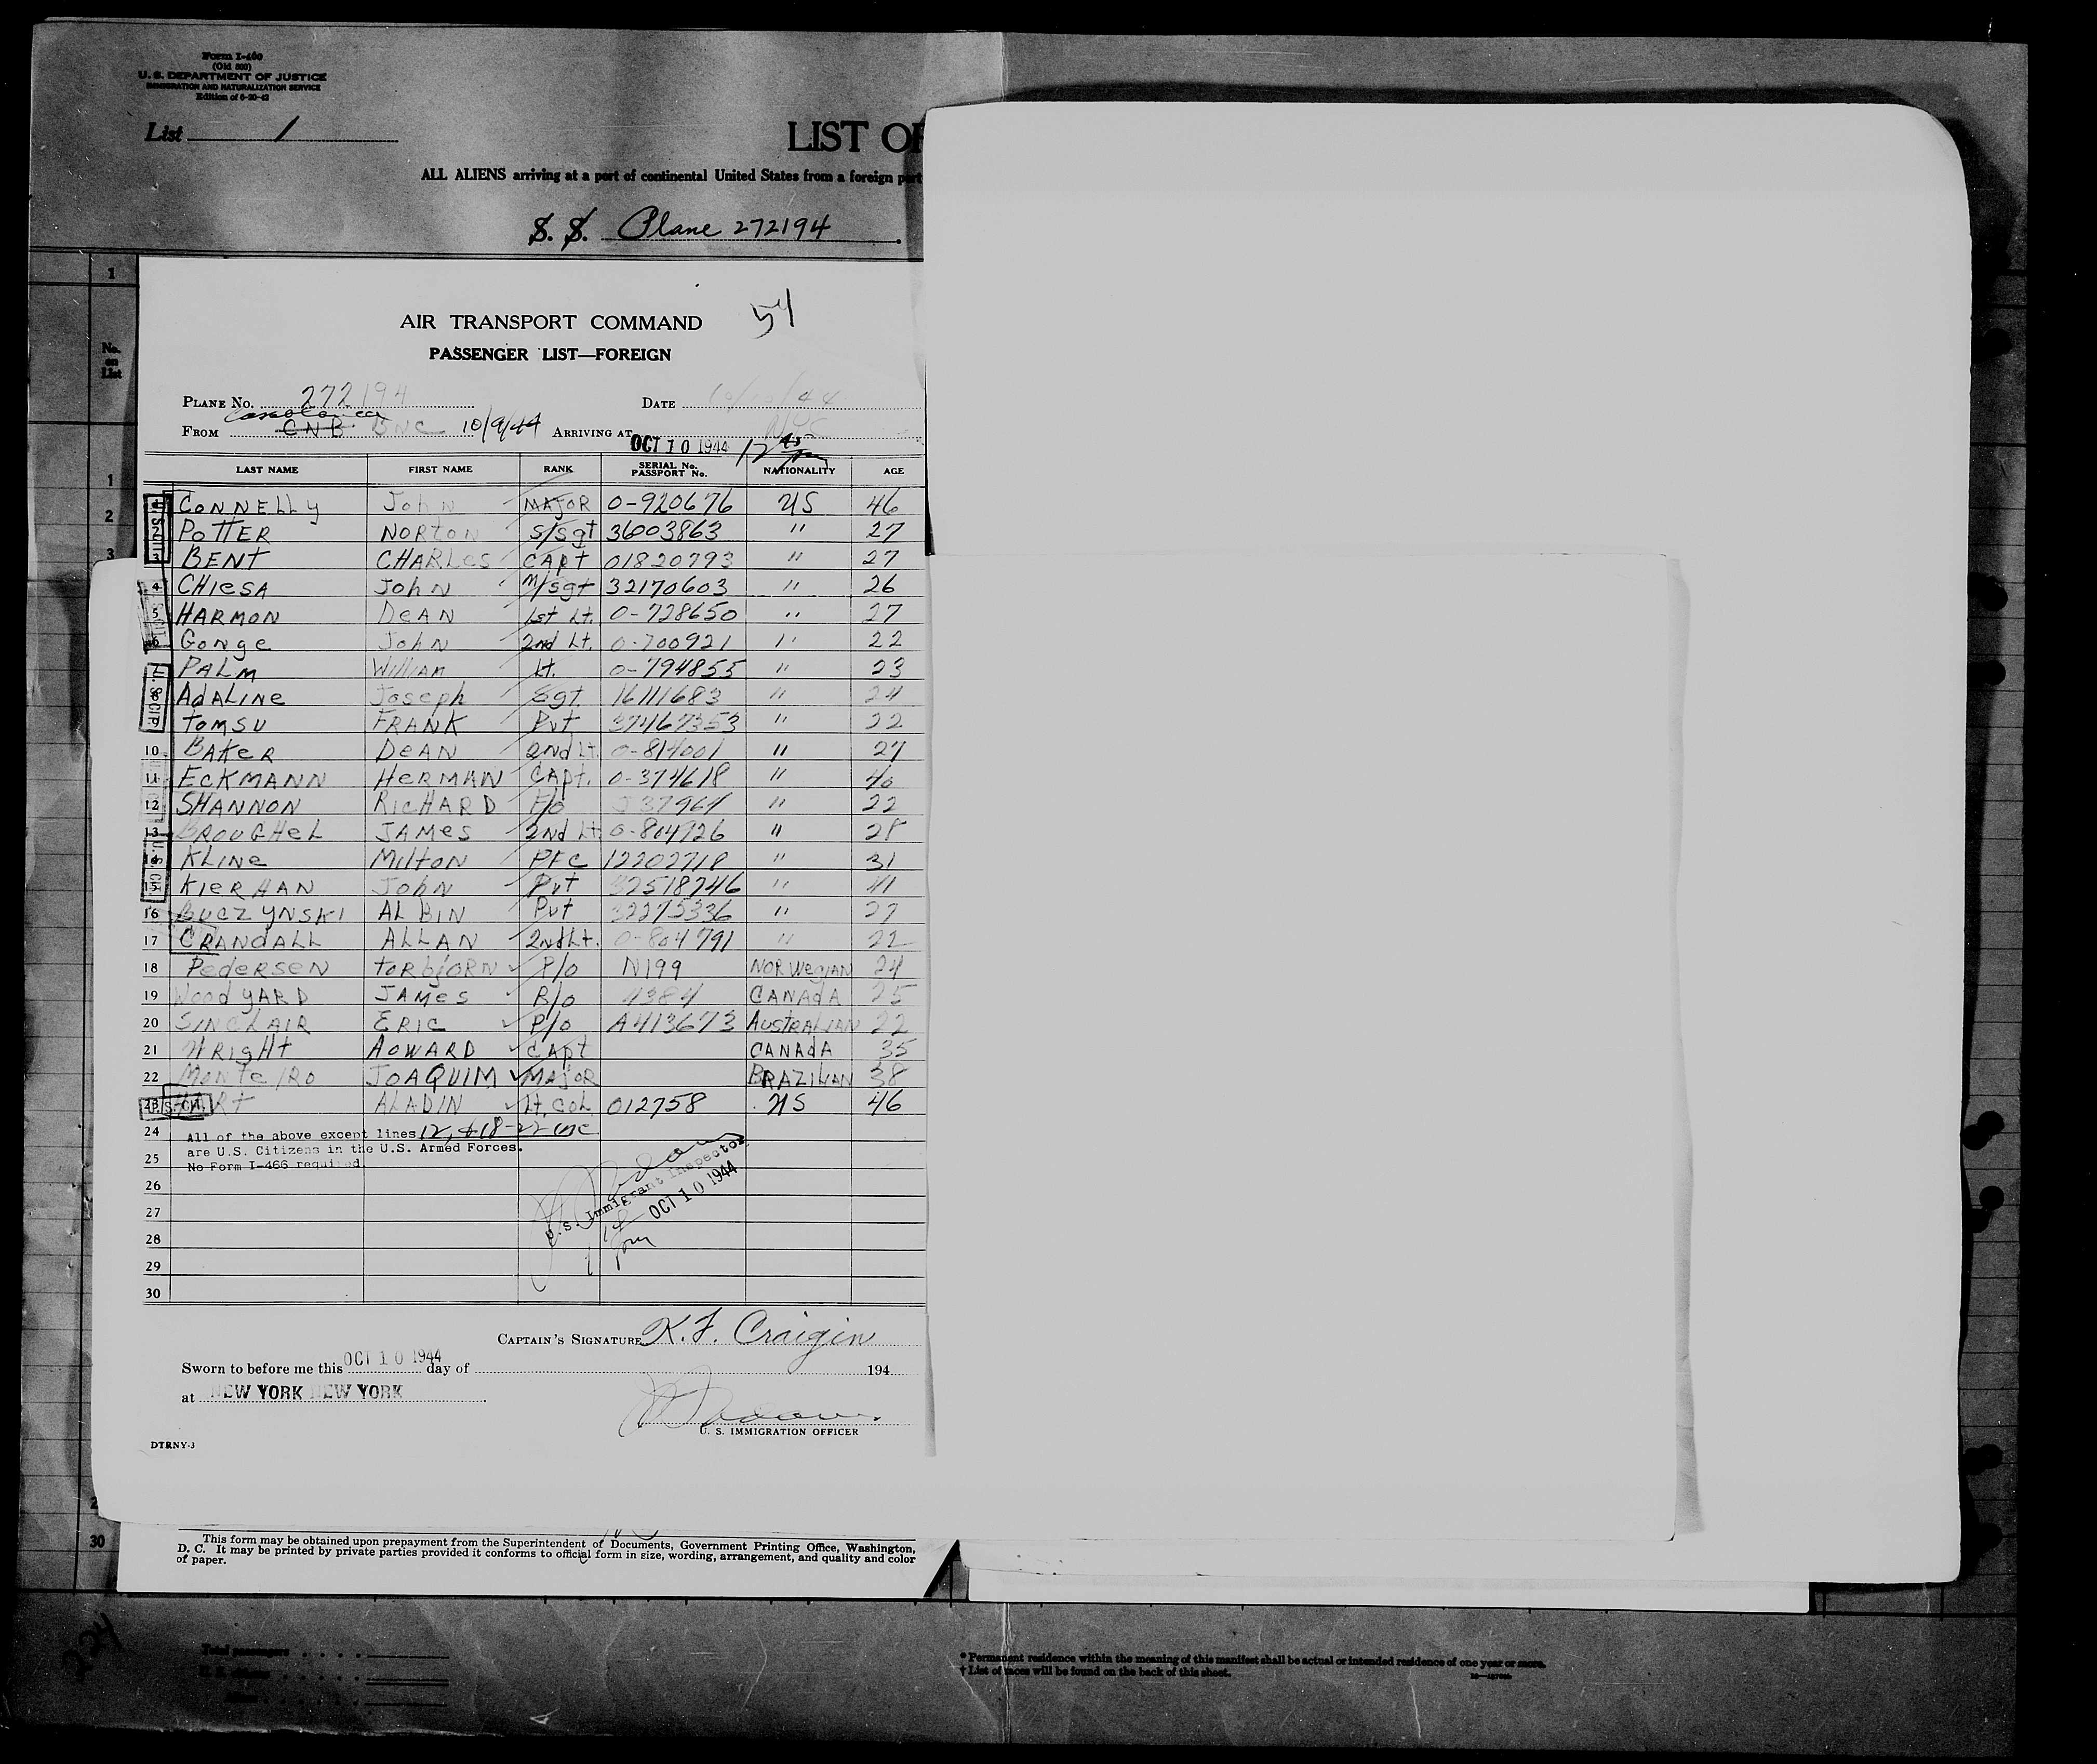 Form I-480
(Old 500)
U. S. DEPARTMENT OF JUSTICE
IMMIGRATION AND NATURALIZATION SERVICE
Edition of 6-20-42
List 1
LIST OF
ALL ALIENS arriving at a port of continental United States from a foreign port
S. S. Plane 272194
1
No. on List
AIR TRANSPORT COMMAND 54
PASSENGER LIST—FOREIGN
PLANE No. 272194 DATE 10/10/44
Casablanca
FROM CNB 10/9/44 ARRIVING AT NYC
OCT 10 1944 12 45 pm
LAST NAME FIRST NAME RANK SERIAL No. PASSPORT No. NATIONALITY AGE
1 CONNELLY John MAJOR 0-920676 US 46
2 POTTER NORTON S/Sgt 36003863 " 27
3 BENT CHARLES CAPT 01820793 " 27
4 CHIESA John M/Sgt 32170603 " 26
5 HARMON DEAN 1st Lt. 0-728650 " 27
6 Gonge John 2nd Lt. 0-700921 " 22
7 PALM William Lt. 0-794855 " 23
8 AdALINE Joseph Sgt 16111683 " 24
TOMSU FRANK Pvt 37467353 " 22
10 BAKER DEAN 2nd Lt. 0-814001 " 27
11 ECKMANN HERMAN CAPT. 0-374618 " 40
12 SHANNON RICHARD F/O J37964 " 22
13 BROUGHEL JAMES 2nd Lt 0-804726 " 28
14 KLINE Milton PFC 12202718 " 31
15 KIERHAN John Pvt 32518746 " 41
16 BUCZYNSKI ALBIN Pvt 32275336 " 27
17 CRANDALL ALLAN 2nd Lt. 0-804791 " 22
18 PEDERSEN TORBJORN P/O N199 NORWEGIAN 24
19 WoodYARD JAMES R/O 4384 CANAdA 25
20 SINCLAIR ERIC P/O A413673 AUSTRALIAN 22
21 WRIGHT HOWARD CAPT CANAdA 35
22 MONTEIRO JOAQUIM MAJOR BRAZILIAN 38
23 HART ALADIN Lt. COL 012758 US 46
24 All of the above except lines 12, & 18-22 inc
25 are U.S. Citizens in the U.S. Armed Forces.
No Form I-466 required.
26
27
28
29
30
U.S. Immigrant Inspector
OCT 10 1944
CAPTAIN'S SIGNATURE K. F. Craigin
Sworn to before me this OCT 10 1944 day of 194
at NEW YORK NEW YORK
U. S. IMMIGRATION OFFICER
DTRNY-3
30
This form may be obtained upon prepayment from the Superintendent of Documents, Government Printing Office, Washington,
D. C. It may be printed by private parties provided it conforms to official form in size, wording, arrangement, and quality and color
of paper.
Total passengers
* Permanent residence within the meaning of this manifest shall be actual or intended residence of one year or more.
† List of races will be found on the back of this sheet.